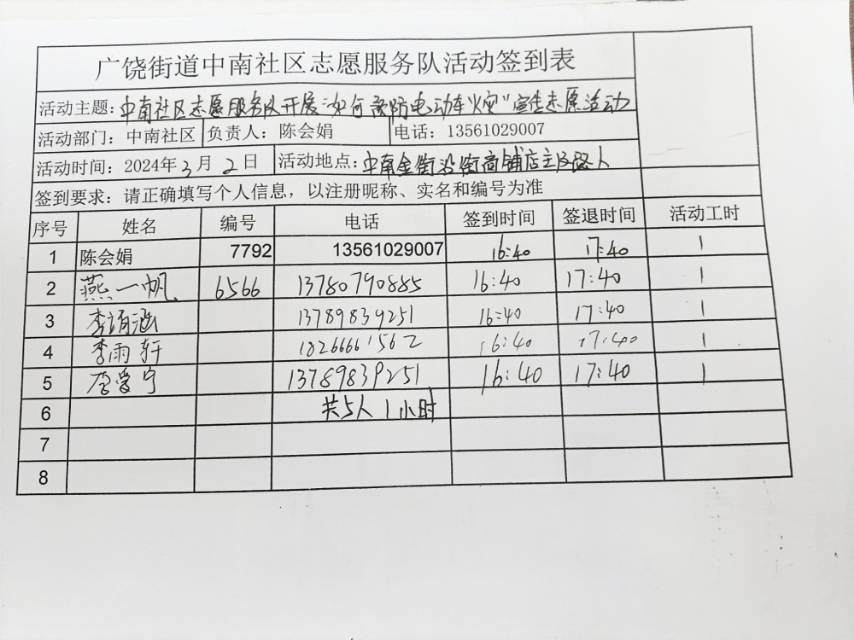 广饶街道中南社区志愿服务队活动签到表
活动主题：中南社区志愿服务队开展"如何预防电动车火灾"宣传志愿活动
活动部门：中南社区 负责人：陈会娟 电话：13561029007
活动时间：2024年3月2日 活动地点：中南金街沿街商铺店主及路人
签到要求：请正确填写个人信息，以注册昵称、实名和编号为准
序号 姓名 编号 电话 签到时间 签退时间 活动工时
1 陈会娟 7792 13561029007 16:40 17:40 1
2 燕一帆 6566 13780790885 16:40 17:40 1
3 李 13789839251 16:40 17:40 1
4 李雨轩 18266661562 16:40 17:40 1
5 13789839251 16:40 17:40 1
6 共5人 1小时
7
8